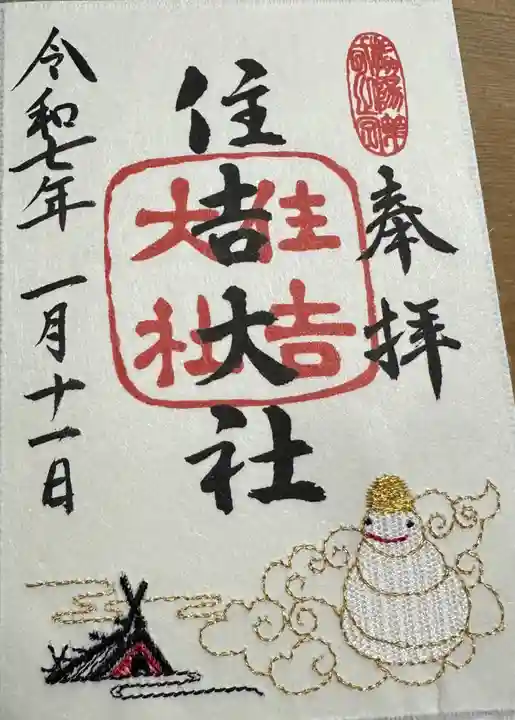 奉拝
住吉大社
住吉大社
令和七年 一月十一日